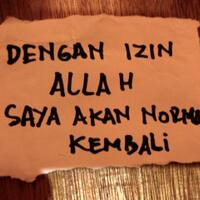 DENGAN IZIN
ALLAH
SAYA AKAN NORMAL
KEMBALI